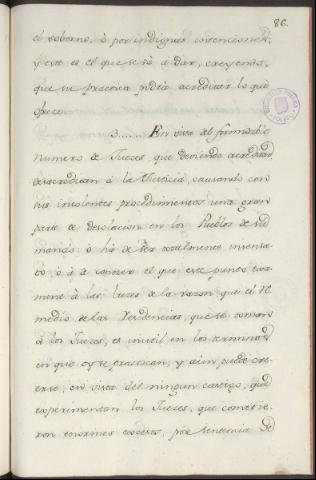 86.
el soborno, ó por indignas intenciones,
y este es el que se vá á dar, creyendo,
que su practica podrá acreditar lo que
ofrece.
3...... En vista del formidable
numero de Jueces, que deviendo acreditar,
desacreditan á la Justicia, causando con
sus insolentes procedimientos una gran
parte de desolacion en los Pueblos de su
mando: ó há de ser totalmente insensa-
to, ó á de conocer el que este punto exa-
mine á las luces de la razon, que el re-
medio de las Residencias, que se toman
á los Jueces, es inutil en los terminos
en que oy se practican, y aún puede cre-
erse, en vista del ningun castigo, que
experimentan los Jueces, que cometie-
ron enormes excesos, por sentencia de